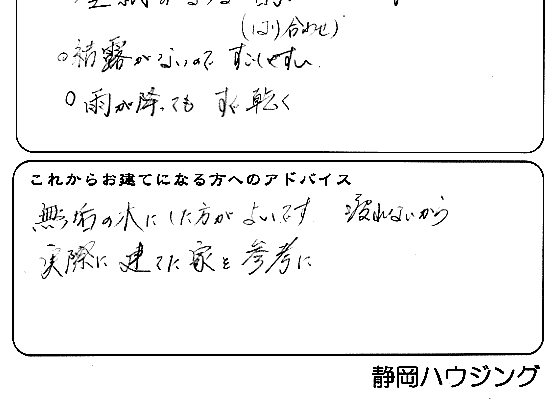 (はり合わせ)
○結露がないので すごしやすい
○雨が降っても すぐ乾く
これからお建てになる方へのアドバイス
無垢の木にした方がよいです 疲れないから
実際に建てた家を参考に
静岡ハウジング